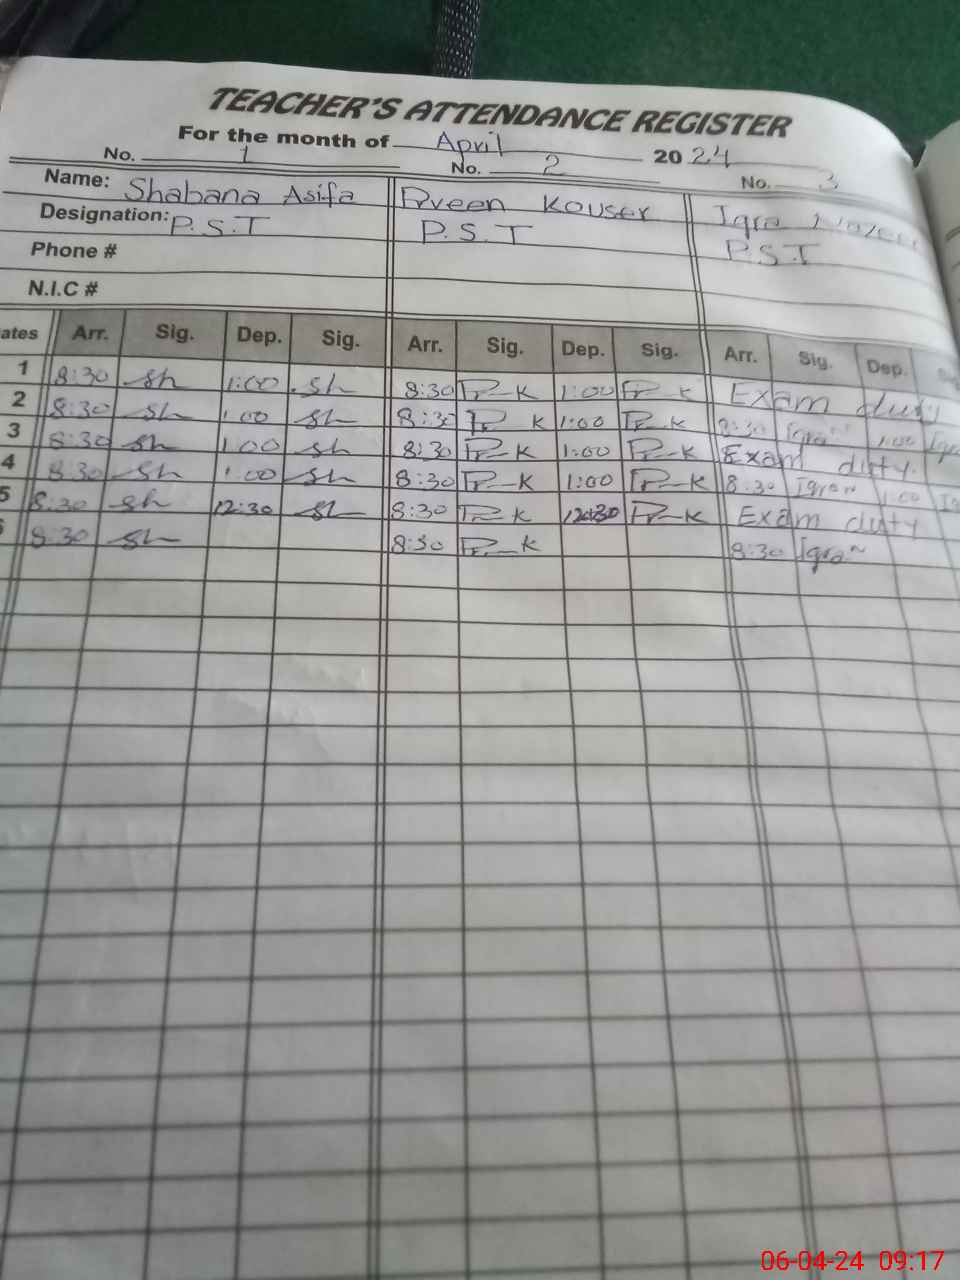 TEACHER'S ATTENDANCE REGISTER
For the month of April 2024
No. 1 No. 2 No. 3
Name: Shabana Asifa Pveen Kouser Iqra
Designation: P.S.T P.S.T P.S.T
Phone #
N.I.C #
ates Arr. Sig. Dep. Sig. Arr. Sig. Dep. Sig. Arr. Sig. Dep.
1 8:30 sh 1:00 sh 8:30 P_K 1:00 P_K Exam duty
2 8:30 sh 1:00 sh 8:30 P_K 1:00 P_K 8:30 Iqra 1:00
3 8:30 sh 1:00 sh 8:30 P_K 1:00 P_K Exam duty
4 8:30 sh 1:00 sh 8:30 P_K 1:00 P_K 8:30 Iqra 1:00
5 8:30 sh 12:30 sh 8:30 P_K 12:30 P_K Exam duty
8:30 sh 8:30 P_K 8:30 Iqra
06-04-24 09:17